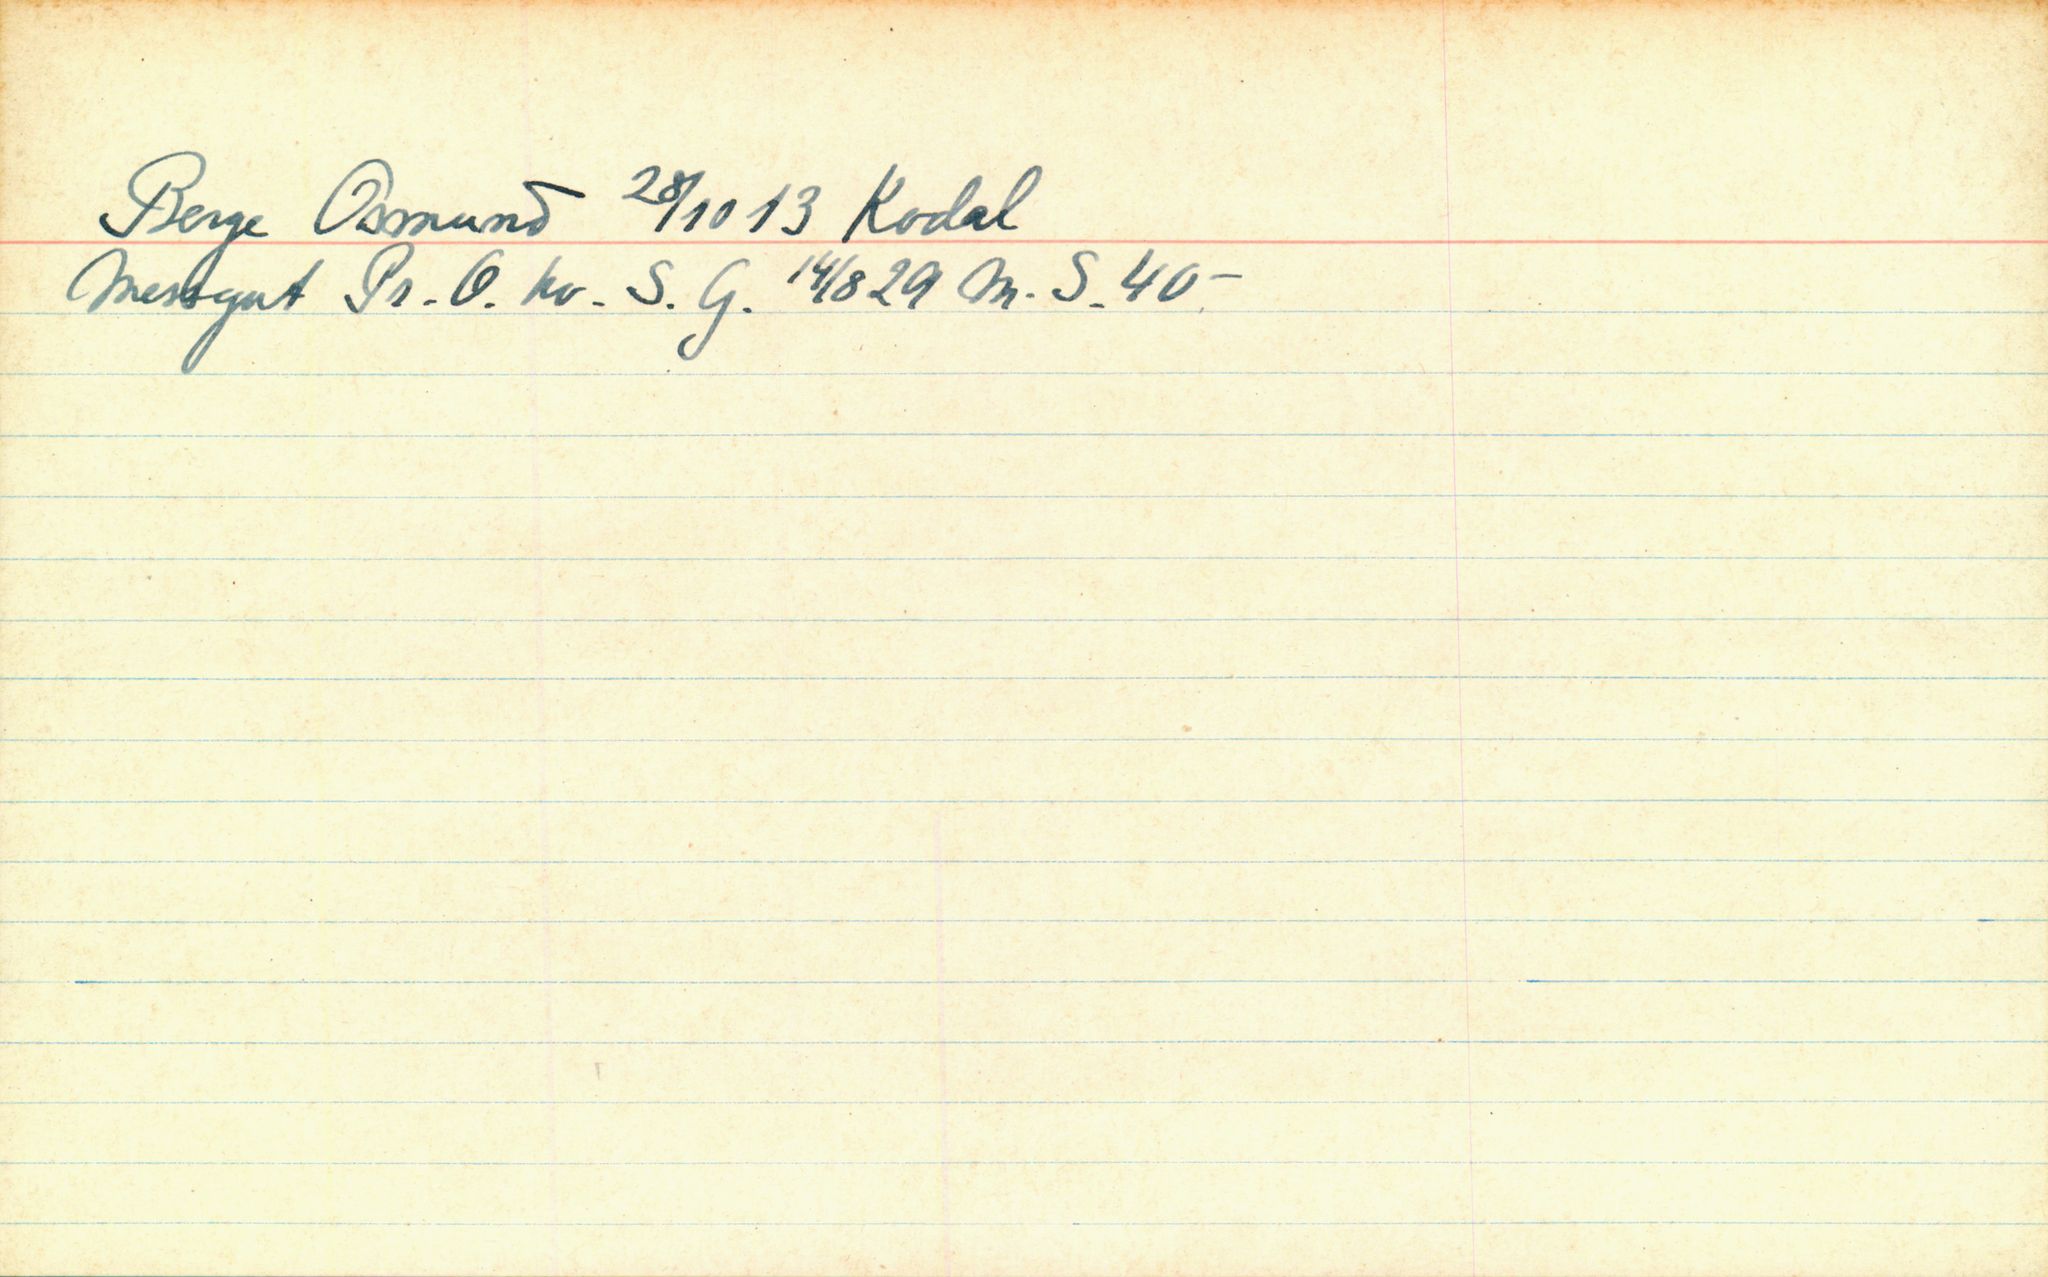 Berge Osmund 28/10 13 Kodal
Messgut Pr. O. kv. S. G. 14/8 29 M. S. 40-